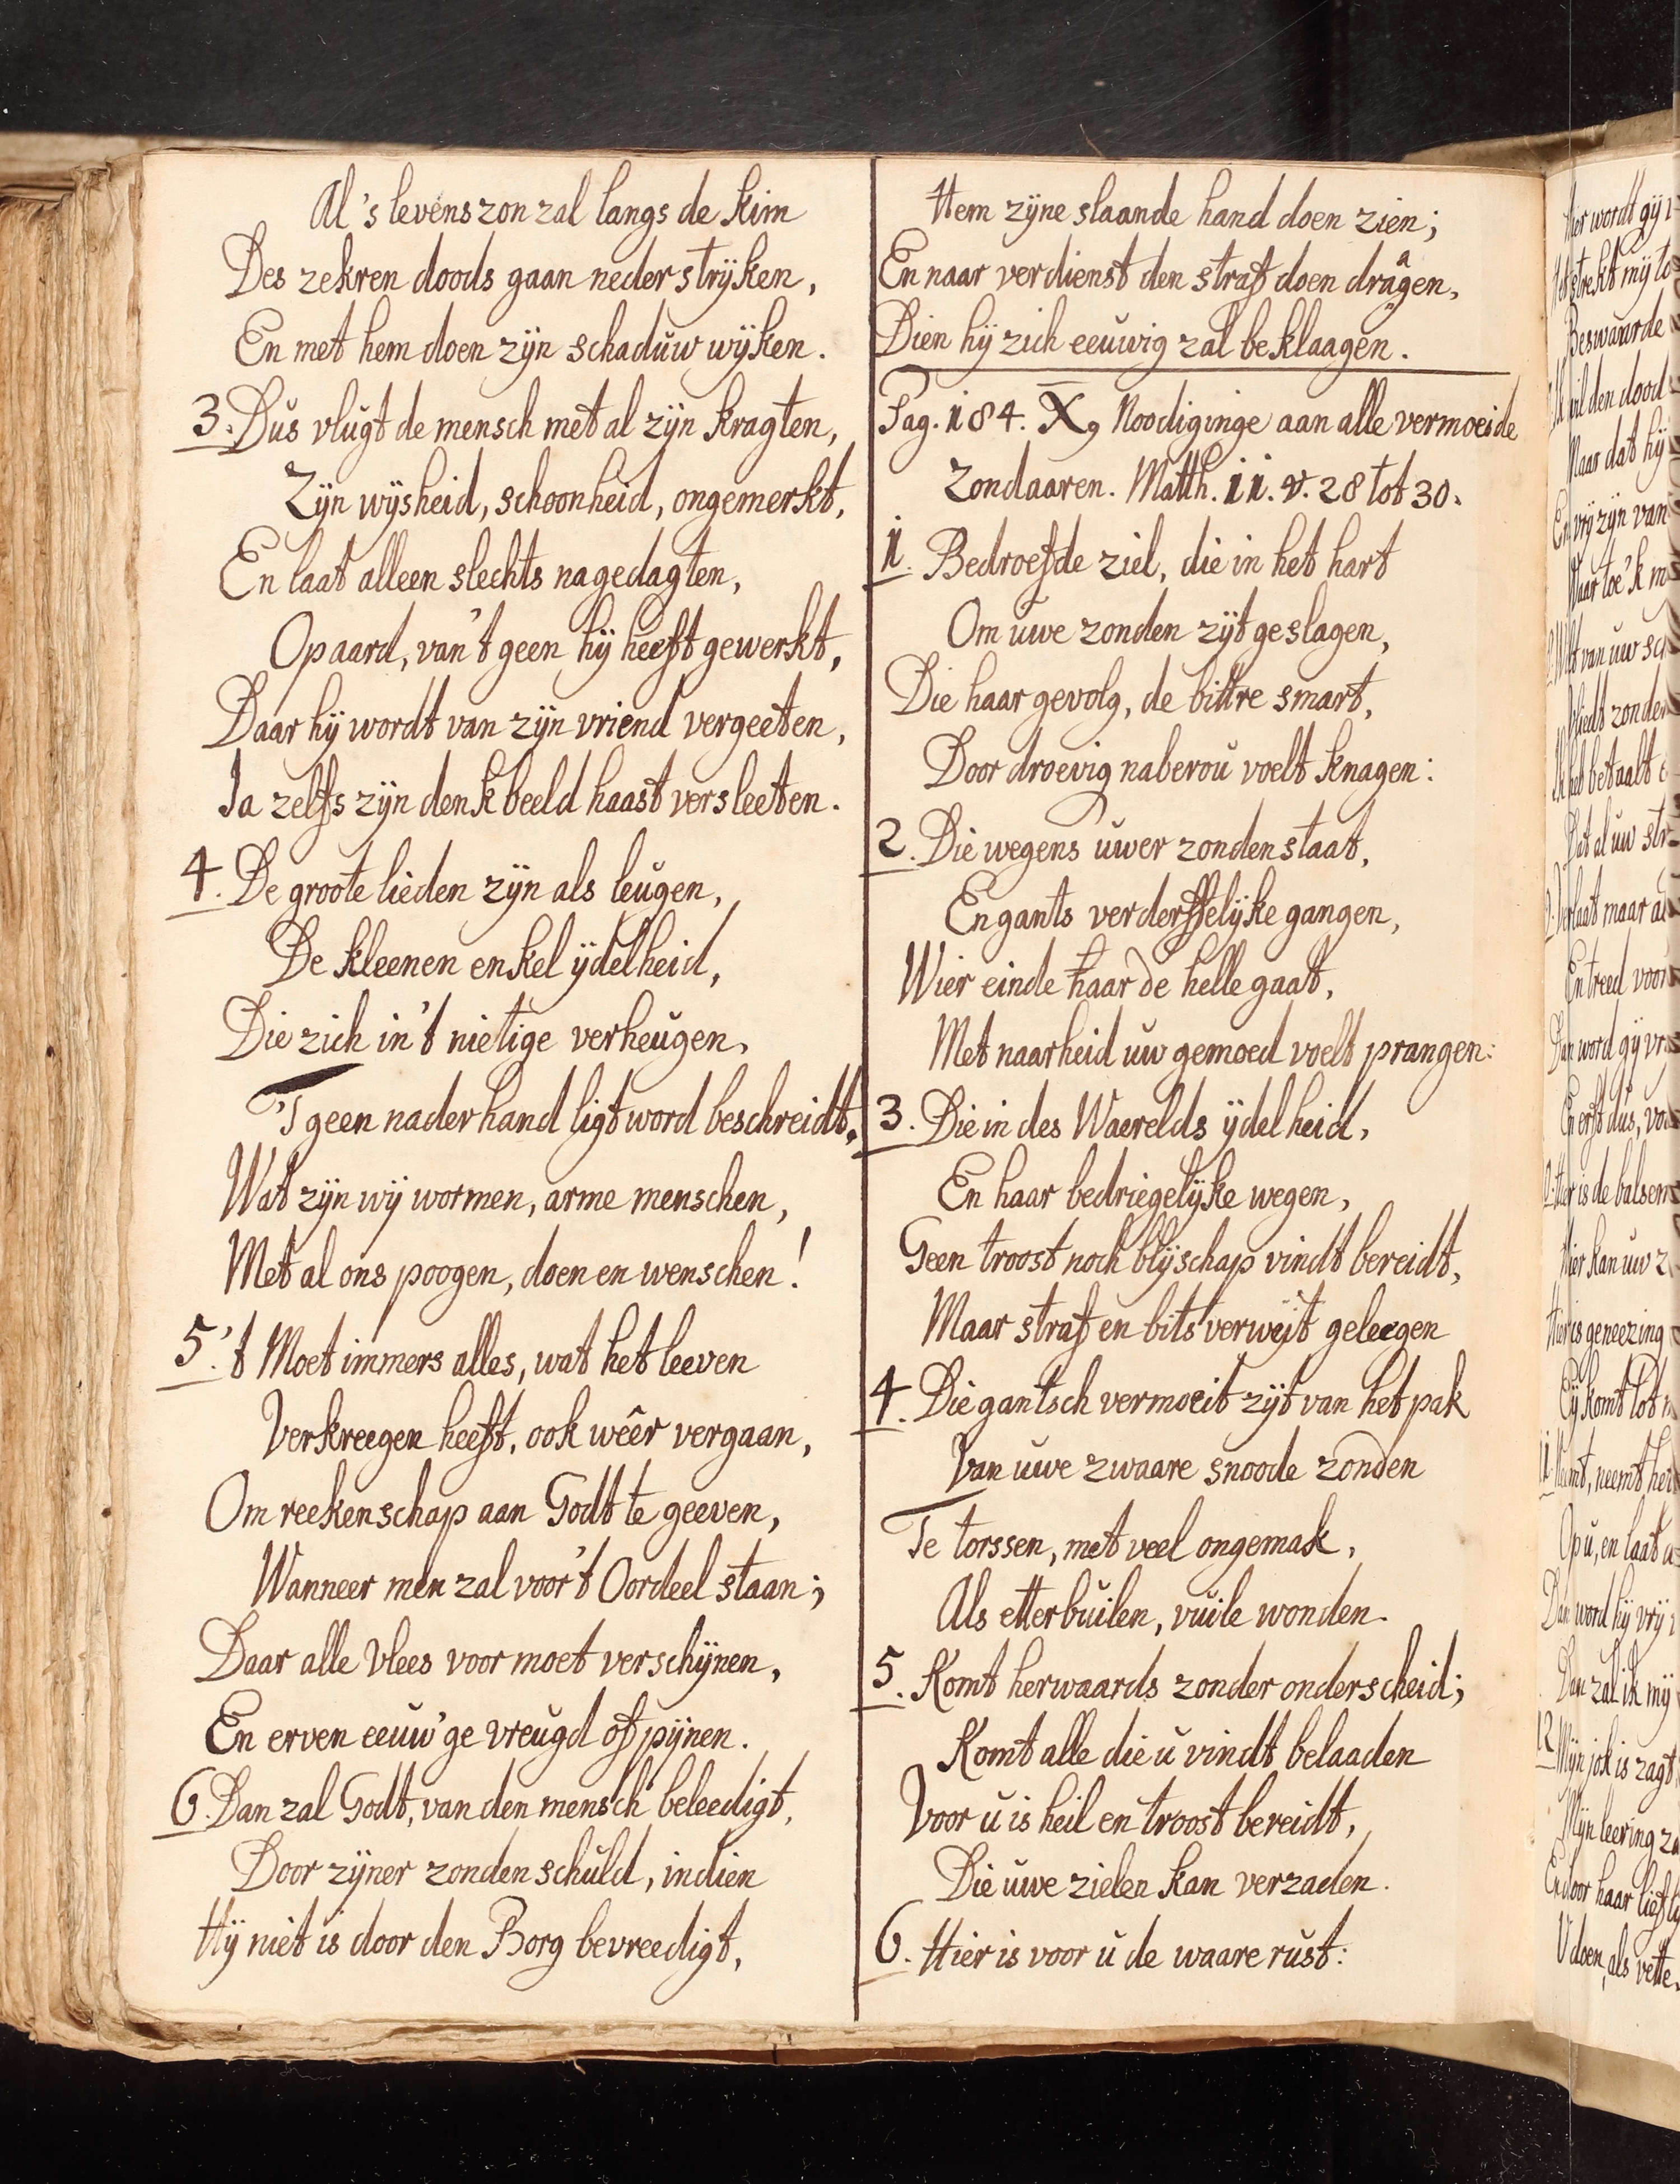 Al 's levens zon zal langs de kim
Des zekren doods gaan neder strijken,
En met hem doen zijn schaduw wijken.
3. Dus vlugt de mensch met al zijn kragten,
Zijn wijsheid, schoonheid, ongemerkt,
En laat alleen slechts nagedagten,
Op aard, van 't geen hij heeft gewerkt,
Daar hij wordt van zijn vriend vergeeten,
Ja zelfs zijn denkbeeld haast versleeten.
4. De groote lieden zijn als leugen,
De kleenen enkel ijdelheid,
Die zich in 't nietige verheugen,
'T geen naderhand ligt word beschreidt,
Wat zijn wij wormen, arme menschen,
Met al ons poogen, doen en wenschen!
5. 't Moet immers alles, wat het leeven
Verkreegen heeft, ook wêer vergaan,
Om reekenschap aan Godt te geeven,
Wanneer men zal voor 't Oordeel staan;
Daar alle vlees voor moet verschijnen,
En erven eeuw'ge vreugd of pijnen.
6. Dan zal Godt, van den mensch beleedigt,
Door zijner zonden schuld, indien
Hij niet is door den Borg bevreedigt,
Hem zijne slaande hand doen zien;
En naar verdienst den straf doen dragen,
Dien hij zich eeuwig zal beklaagen.
Pag. 184. X, Noodiginge aan alle vermoeide
Zondaaren. Matth. 11. v. 28 tot 30.
1. Bedroefde ziel, die in het hart
Om uwe zonden zijt geslagen,
Die haar gevolg, de bittre smart,
Door droevig naberou voelt knagen:
2. Die wegens uwer zonden staat,
En gants verderffelijke gangen,
Wier einde haar de helle gaat,
Met naarheid uw gemoed voelt prangen:
3. Die in des Waerelds ijdelheid,
En haar bedriegelijke wegen,
Geen troost noch blijschap vindt bereidt,
Maar straf en bits verwijt geleegen
4. Die gantsch vermoeit zijt van het pak
Van uwe zwaare snoode zonden
Te torssen, met veel ongemak,
Als etterbuilen, vuile wonden.
5. Komt herwaards zonder onderscheid;
Komt alle die u vindt belaaden
Voor u is heil en troost bereidt,
Die uwe zielen kan verzaden.
6. Hier is voor u de waare rust: